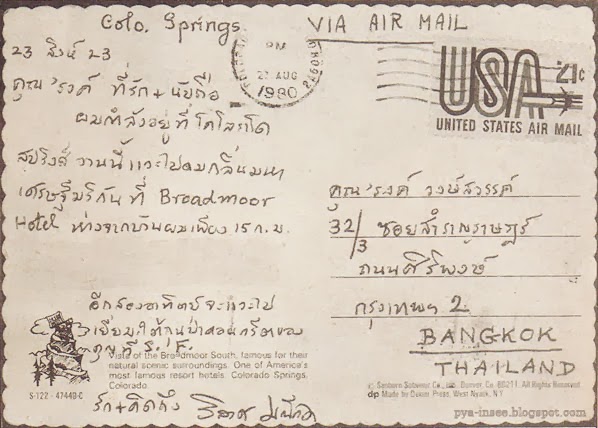 Colo. Springs
VIA AIR MAIL
23 สิงห์ 23
คุณ'รงค์ ที่รัก + นับถือ
ผมกำลังอยู่ที่โคโลราโด
สปริงส์ วานนี้แวะไปดมกลิ่นมหา
เศรษฐีมริกันที่ Broadmoor
Hotel ห่างจากบ้านผมเพียง ๑๕ ก.ม.
อีกสองอาทิตย์จะแวะไป
เยี่ยมใต้ถุนป่าคอนกรีตของ
คุณที่ S.F.
รัก + คิดถึง
PM
21 AUG
1980
USA 21c
UNITED STATES AIR MAIL
คุณ'รงค์ วงษ์สวรรค์
32/3 ซอยสำราญราษฎร์
ถนนศิริพงษ์
กรุงเทพฯ 2.
BANGKOK
THAILAND
Vista of the Broadmoor South, famous for their
natural scenic surroundings. One of America's
most famous resort hotels. Colorado Springs,
Colorado.
S-122 - 47449-C
© Sanborn Souvenir Co., Inc., Denver, Co. 80211 All Rights Reserved
dp Made by Dexter Press, West Nyack, N.Y.
pya-insee.blogspot.com